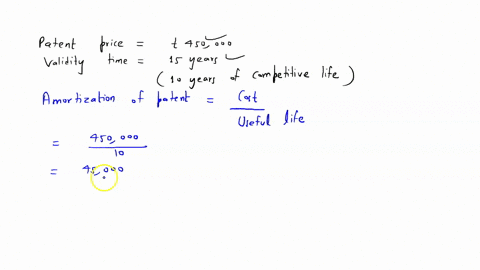 Patent price = t 450,000
Validity time = 15 years
( 10 years of competitive life )
Amortization of patent = Cost
Useful life
= 450,000
10
= 45,000